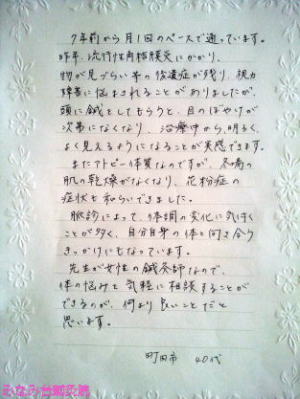 7年前から月1のペースで通っています。
昨年、流行性角結膜炎にかかり、
物が見づらい等の後遺症が残り、視力
障害に悩まされることがありましたが、
頭に鍼をしてもらうと、目のぼやけが
次第になくなり、治療中から明るく、
よく見えるようになることが実感できます。
またアトピー体質なのですが、冬場の
肌の乾燥がなくなり、花粉症の
症状も和らいできました。
脈診によって、体調の変化に気付く
ことが多く、自分自身の体と向き合う
きっかけにもなっています。
先生が女性の鍼灸師なので、
体の悩みを気軽に相談することが
できるのが、何より良いことだと
思います。
町田市 40代
ふなみ台鍼灸院